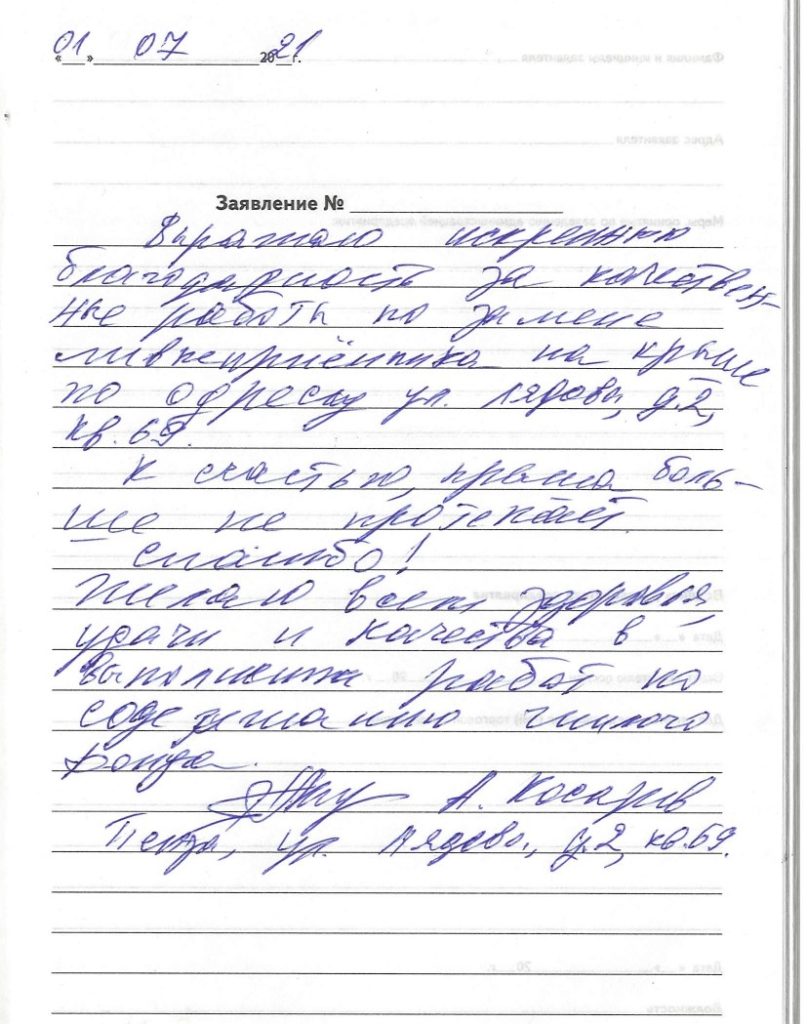 «01» 07 2021г.
Заявление №
Выражаю искреннюю
благодарность за качествен-
ные работы по замене
ливнеприёмника на крыше
по адресу ул. Лядова, д.2,
кв. 69.
К счастью, крыша боль-
ше не протекает.
Спасибо!
Желаю всем здоровья,
удачи и качества в
выполнении работ по
содержанию жилого
фонда.
А. Косарев
Пенза, ул. Лядова, д.2, кв.69.